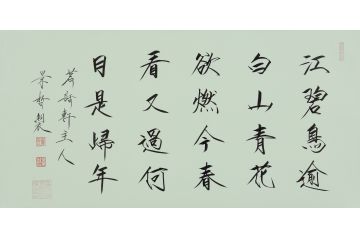 江碧鳥逾
白山青花
欲燃今春
看又過何
日是歸年
主人